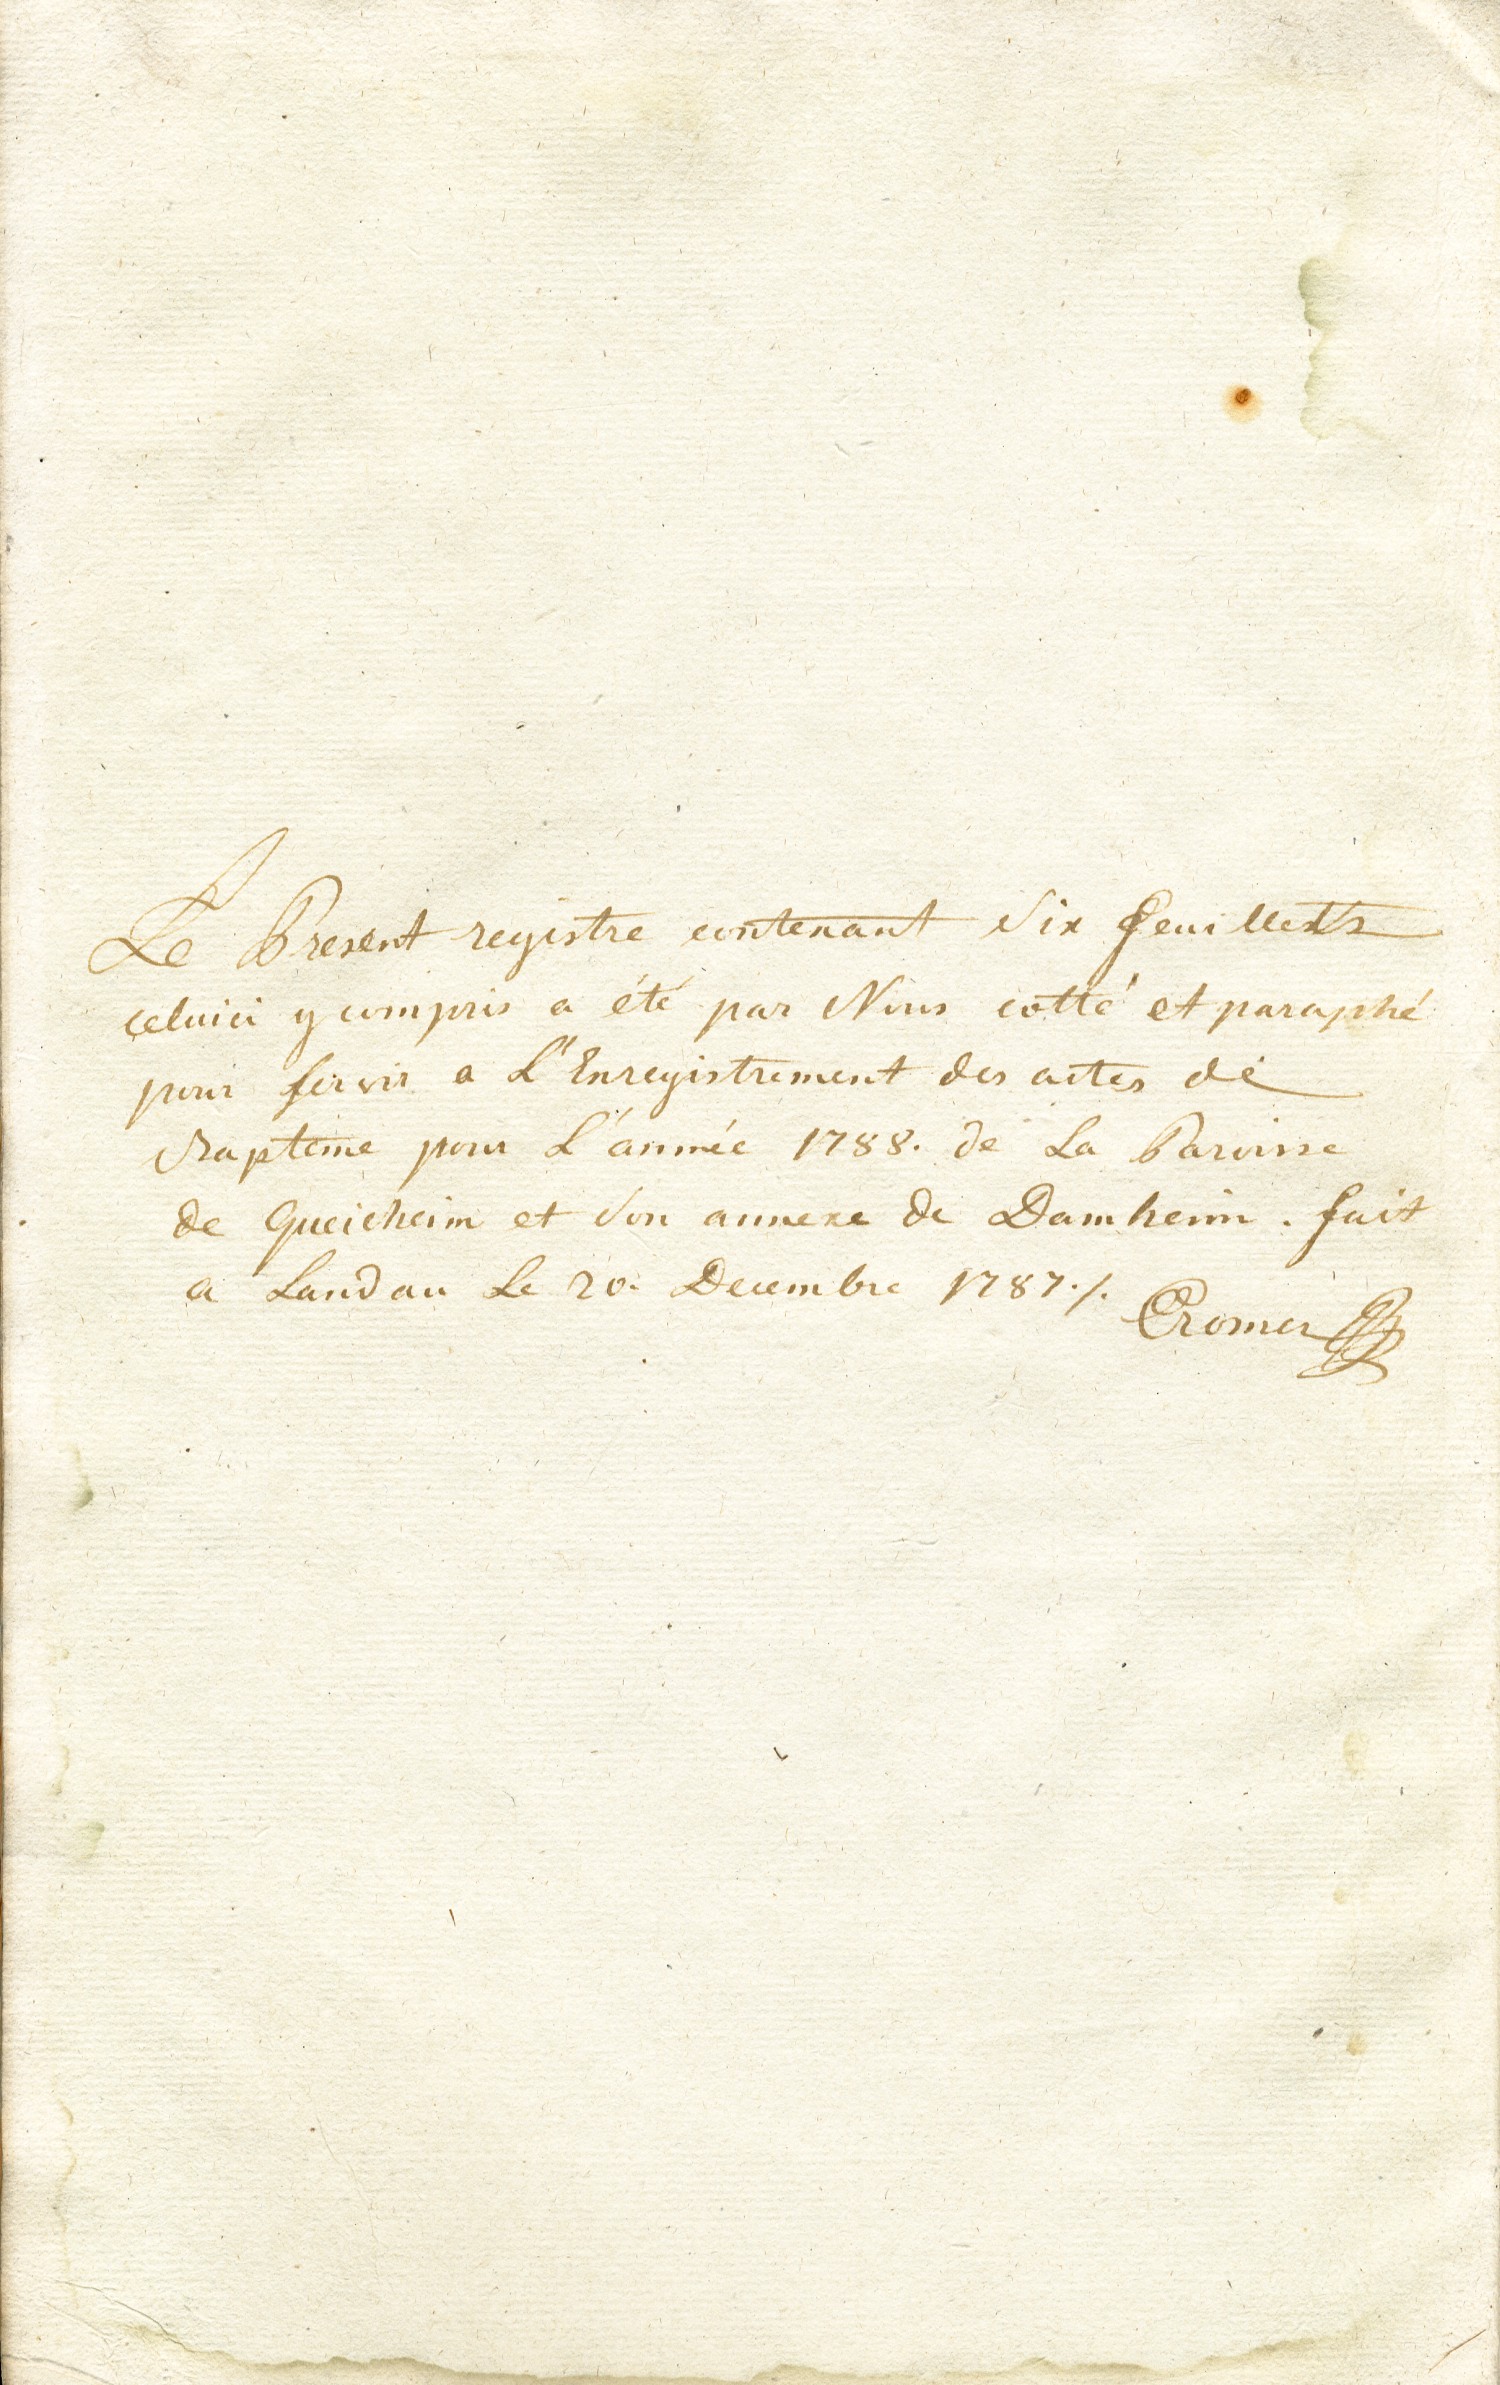 Le Present registre contenant Six feuillets
celuici y compris a été par Nous cotté et paraphé
pour servir a L'Enregistrement des actes de
Bapteme pour L'année 1788. de La Paroisse
de Queicheim et Son annexe de Damheim. fait
a Landau Le 20. Decembre 1787./.
Cromer